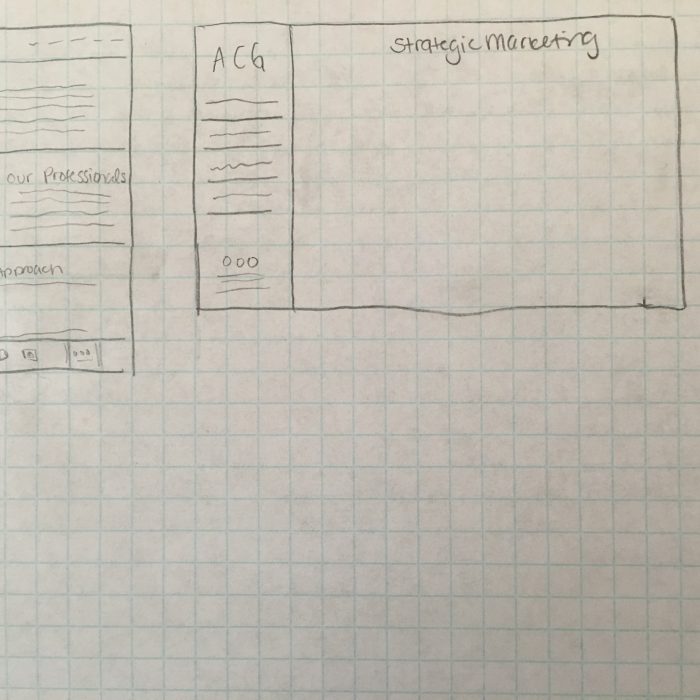 our Professionals
Approach
ACG
Strategic Marketing